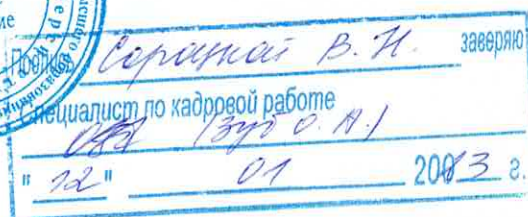 Подпись Сорацкой В. Н. заверяю
Специалист по кадровой работе
(Зуб О. А.)
" 12 " 01 2013 г.